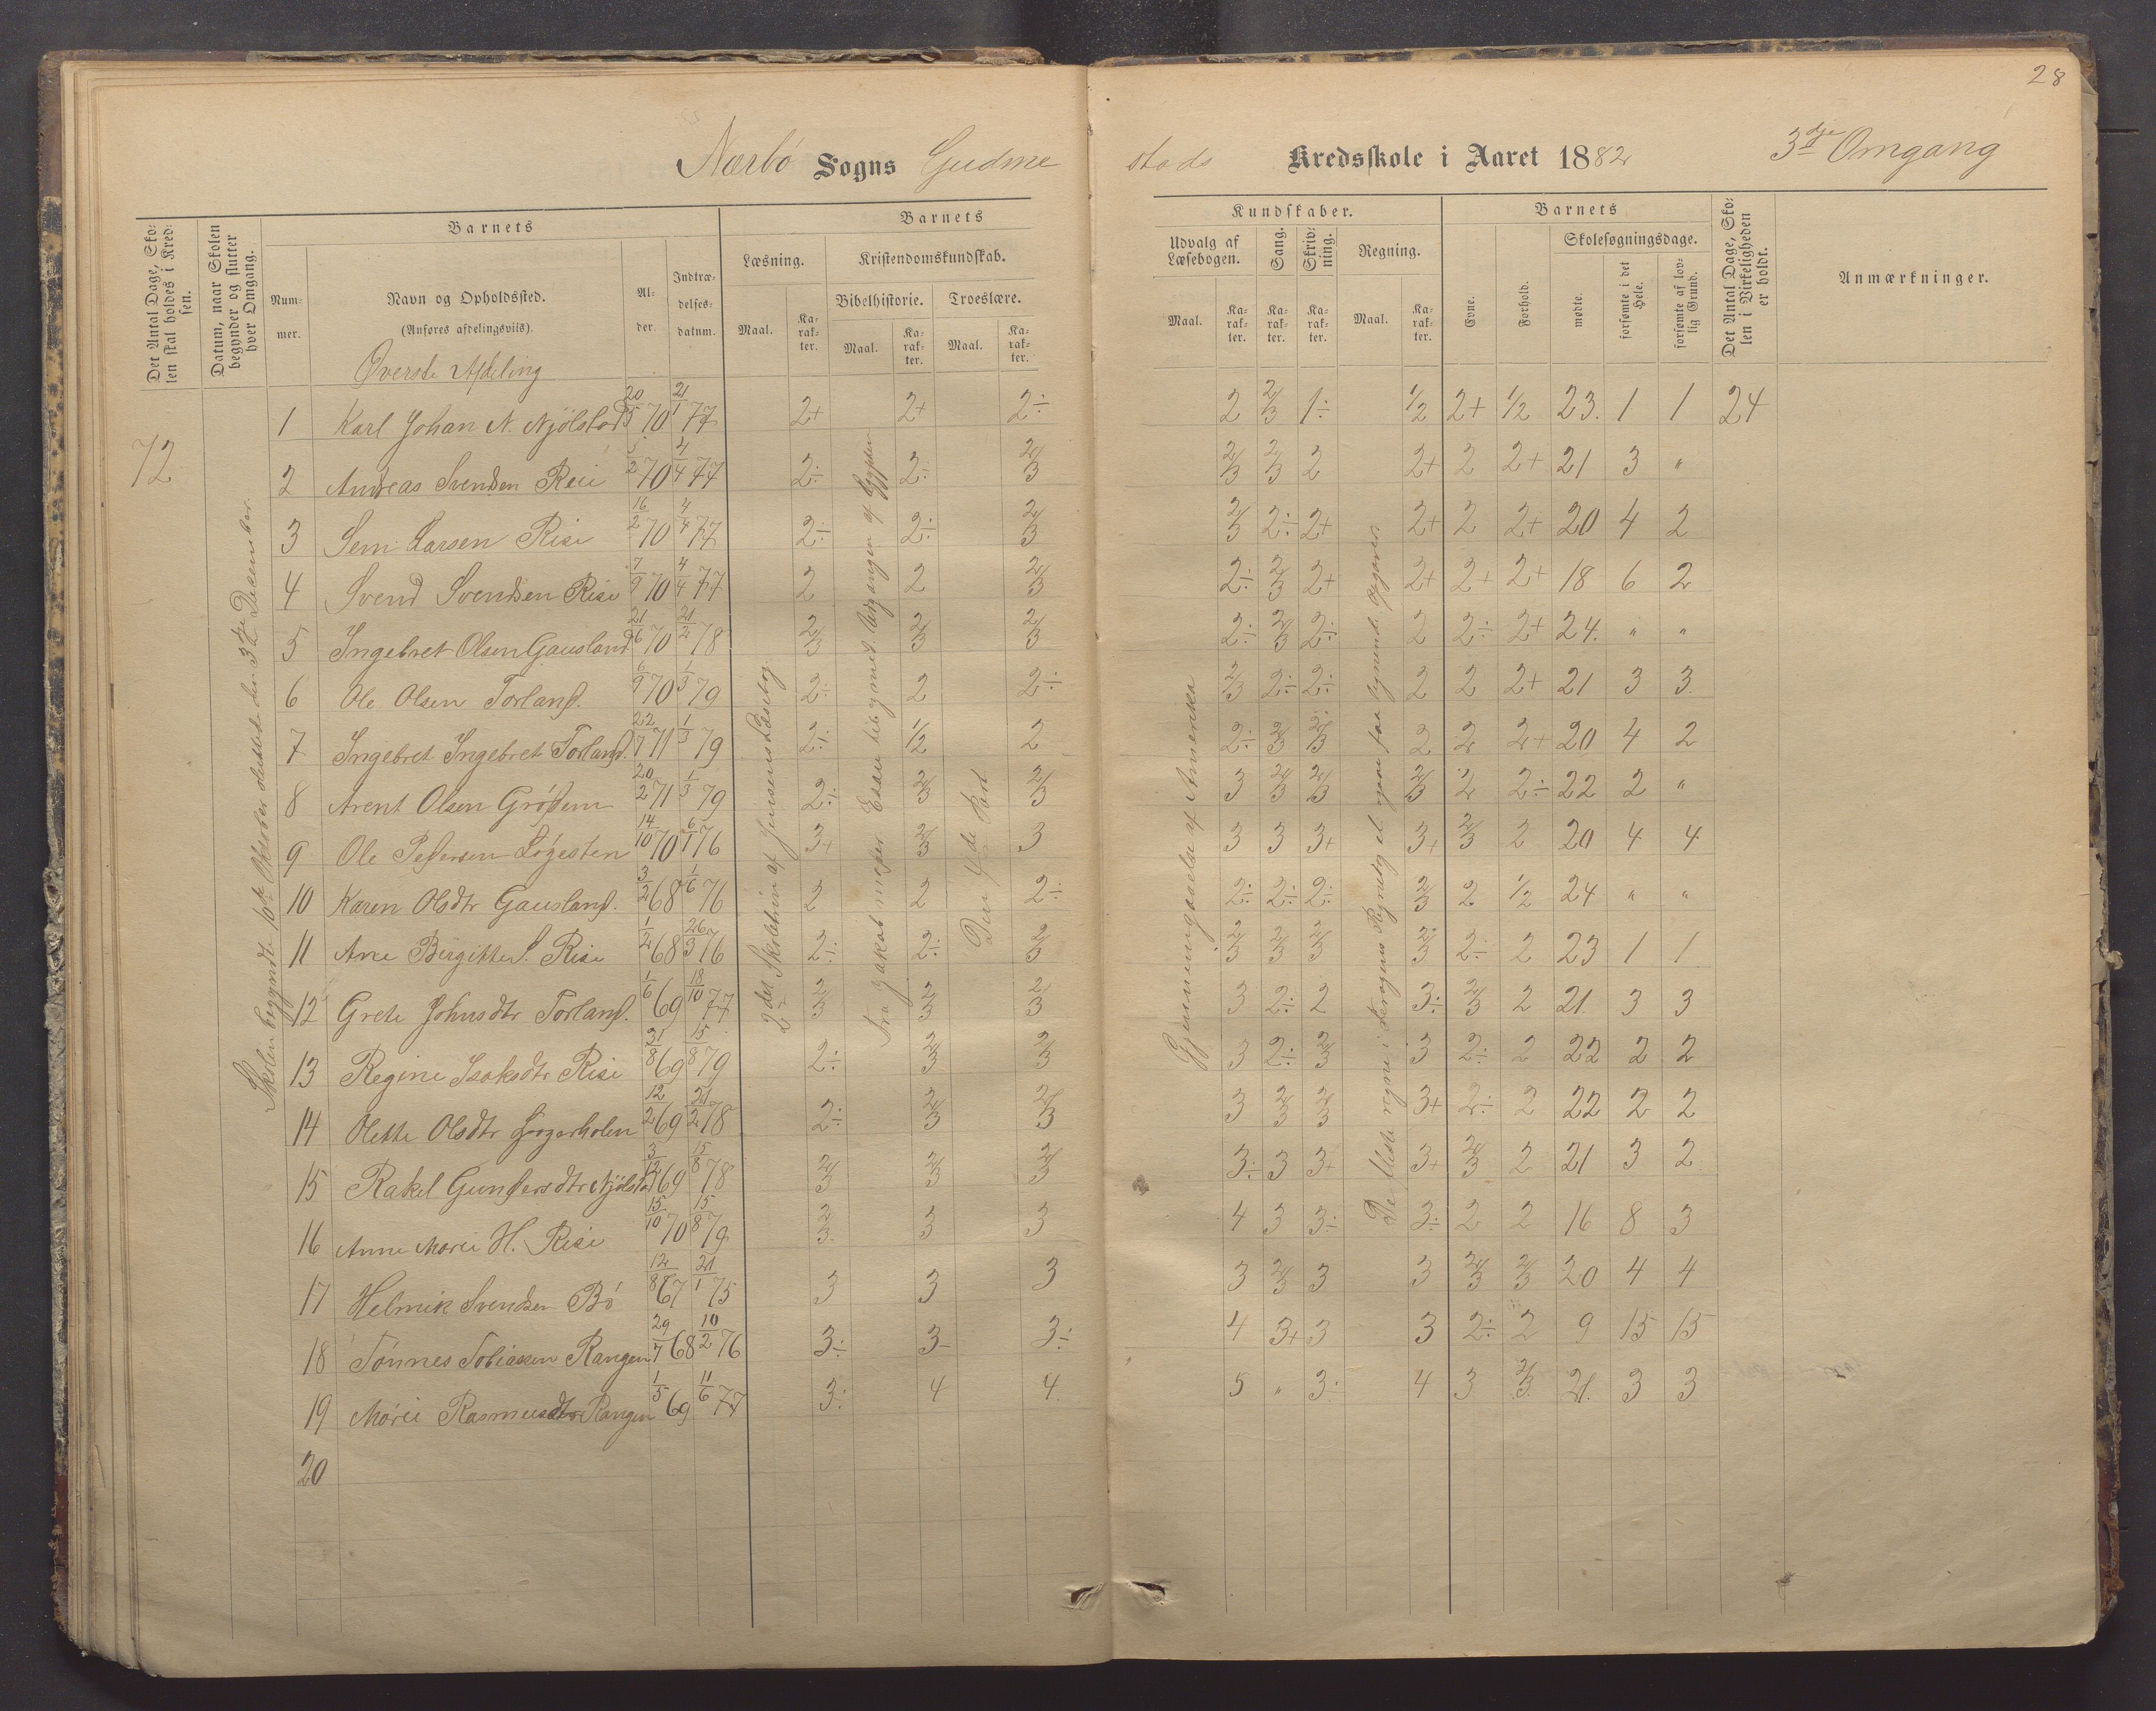 28
Nærbø Sogns Gudme
stads Kredsskole i Aaret 1882 3dje Omgang
Det Antal Dage, Skolen skal holdes i Kredsen.
Datum, naar Skolen begynder og slutter hver Omgang.
Barnets
Nummer.
Navn og Opholdssted.
(Anføres afdelingsviis).
Alder.
Indtrædelsesdatum.
Barnets
Læsning.
Kristendomskundskab.
Bibelhistorie.
Troeslære.
Maal.
Karakter.
Maal.
Karakter.
Maal.
Karakter.
Kundskaber.
Udvalg af Læsebogen.
Sang.
Skrivning.
Regning.
Maal.
Karakter.
Karakter.
Karakter.
Maal.
Karakter.
Barnets
Evne.
Forhold.
Skolesøgningsdage.
mødte.
forsømte i det Hele.
forsømte af lovlig Grund.
Det Antal Dage, Skolen i Virkeligheden er holdt.
Anmærkninger.
Øverste Afdeling
72
Skolen begyndte 10de Oktober sluttede den 3dje December.
2den Skoletrin af Jensens Læsebog
fra Jakob møder Esau til og med Udgangen af Ægypten
Den 4de Part
Gjennemgaaelse af Amerika
1 Karl Johan N. Njölstad 20/5 70 21/1 77 2+ 2+ 2÷ 2 2/3 1÷ 1/2 2+ 1/2 23. 1 1 24
2 Andreas Svendsen Reii 5/2 70 4/4 77 2÷ 2÷ 2/3 2/3 2/3 2 2+ 2 2+ 21 3 "
3 Sem Larsen Risi 16/2 70 4/4 77 2÷ 2÷ 2/3 2/3 2÷ 2+ 2+ 2 2+ 20 4 2
4 Svend Svendsen Risi 7/9 70 4/4 77 2 2 2/3 2÷ 2/3 2+ 2+ 2+ 2+ 18 6 2
5 Ingebret Olsen Gausland 21/6 70 21/2 78 2/3 2/3 2/3 2÷ 2/3 2÷ 2 2÷ 2+ 24. " "
6 Ole Olsen Torland. 6/9 70 1/3 79 2÷ 2 2÷ 2/3 2÷ 2÷ 2 2 2+ 21 3 3
7 Ingebret Ingebret Torland. 22/7 71 1/3 79 2÷ 1/2 2 2÷ 2/3 2/3 2 2 2+ 20 4 2
8 Arent Olsen Grödem 20/2 71 1/3 79 2÷ 2/3 2/3 3 2/3 2/3 2/3 2 2÷ 22 2 "
9 Ole Pedersen Løgesten 14/10 70 6/1 76 3+ 2/3 3 3 3 3+ 3+ 2/3 2 20 4 4
10 Karen Olsdtr Gausland. 3/2 68 1/6 76 2 2 2÷ 2÷ 2÷ 2÷ 2/3 2 1/2 24 " "
11 Ane Birgitte S. Risi 1/2 68 26/3 76 2÷ 2÷ 2/3 2/3 2/3 2/3 2/3 2÷ 2 23 1 1
12 Grete Johnsdtr Torland. 1/6 69 18/10 77 2/3 2/3 2/3 3 2÷ 2 3÷ 2/3 2 21. 3 3
13 Regine Isaksdtr Risi 31/8 69 15/8 79 2÷ 2/3 2/3 3 2÷ 2/3 3 2÷ 2 22 2 2
14 Olette Olsdtr 12/2 69 21/2 78 2÷ 2/3 2/3 3 2/3 2/3 3+ 2÷ 2 22 2 2
15 Rakel Gundersdtr Njölstad 3/12 69 15/8 78 2/3 2/3 2/3 3÷ 3 3+ 3+ 2/3 2 21 3 2
16 Anne Marie H. Risi 15/10 70 15/8 79 2/3 3 3 4 3 3÷ 3÷ 2 2 16 8 3
17 Helmik Svendsen Bö 12/8 67 21/1 75 3 3 3 3 2/3 3 3 2/3 2/3 20 4 4
18 Tönnes Tobiassen Rangen 29/7 68 10/2 76 3÷ 3 3÷ 4 3+ 3 3 2÷ 2 9 15 15
19 Marie Rasmusdtr Rangen 1/5 69 11/6 77 3÷ 4 4 5 " 3÷ 4 3 2/3 21. 3 3
20